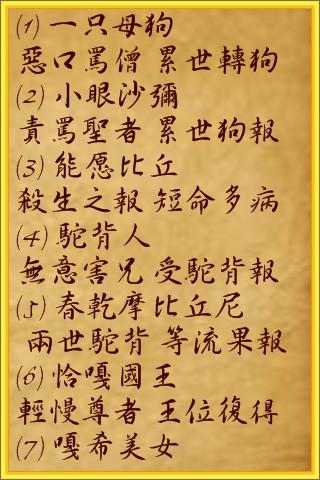 (1) 一只母狗
惡口罵僧 累世轉狗
(2) 小眼沙彌
責罵聖者 累世狗報
(3) 能愿比丘
殺生之報 短命多病
(4) 駝背人
無意害兄 受駝背報
(5) 春乾摩比丘尼
兩世駝背 等流果報
(6) 恰嘎國王
輕慢尊者 王位復得
(7) 嘎希美女